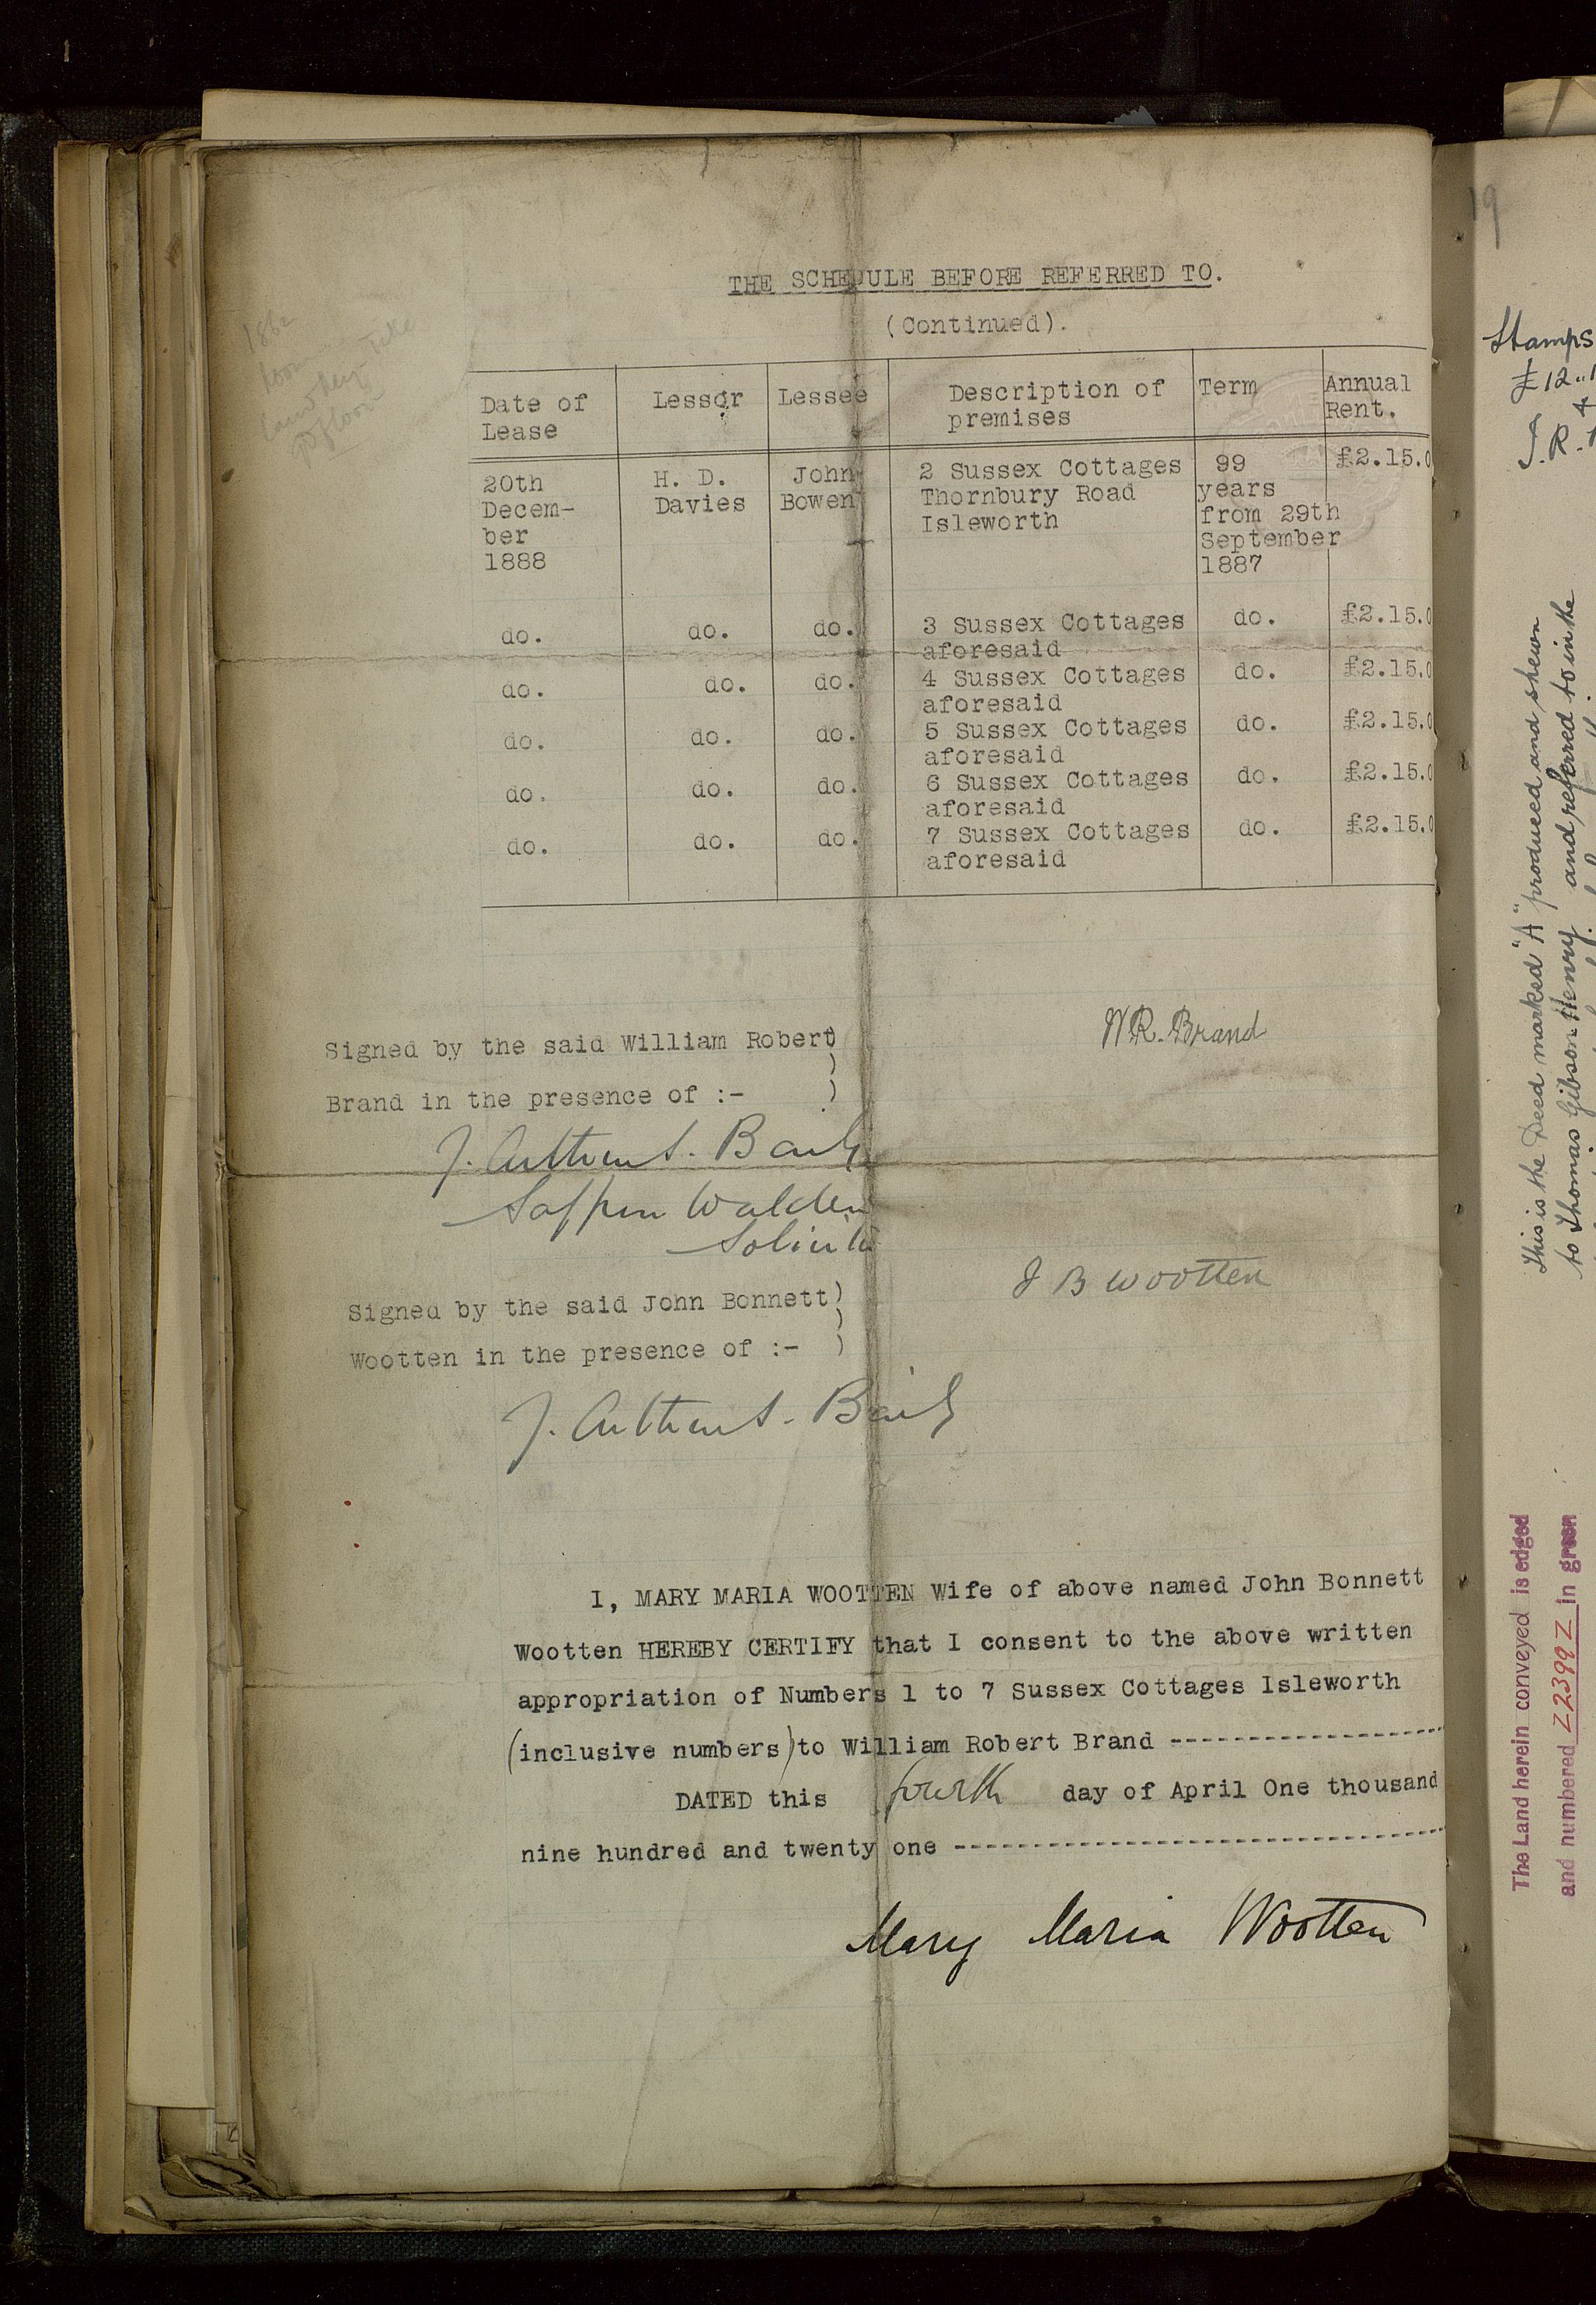 THE SCHEDULE BEFORE REFERRED TO.
(Continued).
Date of Lease | Lessor | Lessee | Description of premises | Term | Annual Rent.
20th Decem-ber 1888 | H. D. Davies | John Bowen | 2 Sussex Cottages Thornbury Road Isleworth | 99 years from 29th September 1887 | £2.15.0
do. | do. | do. | 3 Sussex Cottages aforesaid | do. | £2.15.0
do. | do. | do. | 4 Sussex Cottages aforesaid | do. | £2.15.0
do. | do. | do. | 5 Sussex Cottages aforesaid | do. | £2.15.0
do. | do. | do. | 6 Sussex Cottages aforesaid | do. | £2.15.0
do. | do. | do. | 7 Sussex Cottages aforesaid | do. | £2.15.0
Signed by the said William Robert)
Brand in the presence of :- )
W R. Brand
J. Arthur S.
Saffron Walden
Signed by the said John Bonnett)
Wootten in the presence of :- )
J B Wootten
J. Arthur S.
I, MARY MARIA WOOTTEN Wife of above named John Bonnett
Wootten HEREBY CERTIFY that I consent to the above written
appropriation of Numbers 1 to 7 Sussex Cottages Isleworth
(inclusive numbers) to William Robert Brand
DATED this fourth day of April One thousand
nine hundred and twenty one
Mary Maria Wootten
19
Stamps
£12
This is the Deed marked "A" produced and shewn
to Thomas Gibson Henry and referred to in the
The Land herein conveyed is edged
and numbered Z2399Z in green